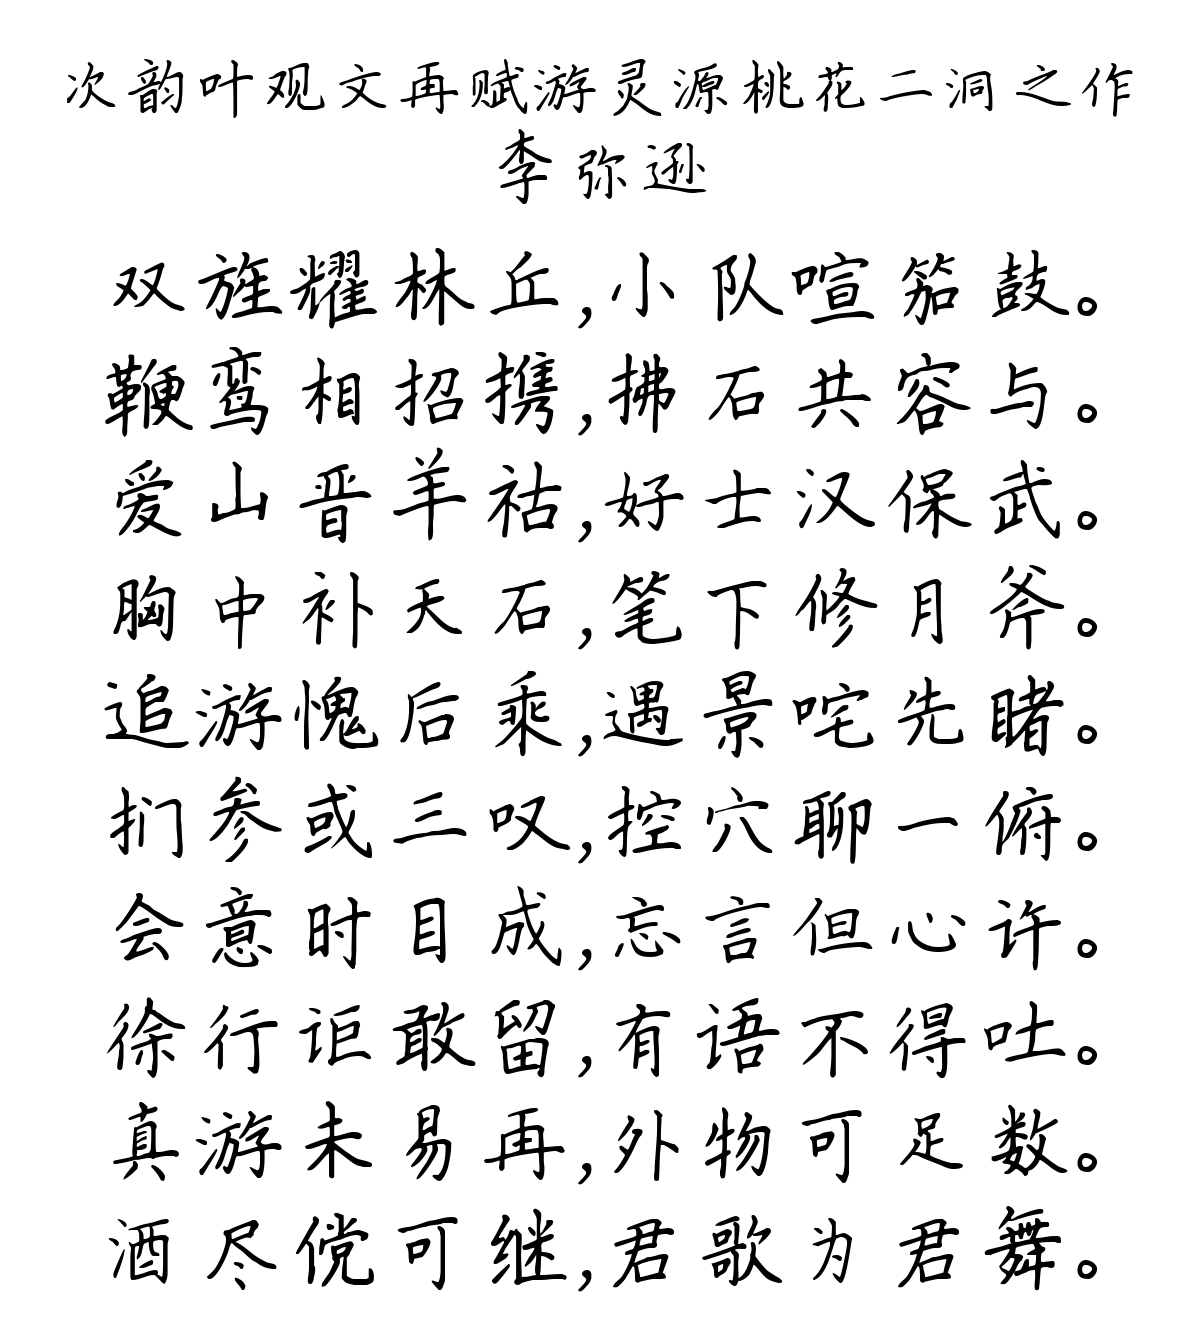 次韵叶观文再赋游灵源桃花二洞之作
李弥逊
双旌耀林丘,小队喧笳鼓。
鞭鸾相招携,拂石共容与。
爱山晋羊祜,好士汉保武。
胸中补天石,笔下修月斧。
追游愧后乘,遇景咤先睹。
扪参或三叹,控穴聊一俯。
会意时目成,忘言但心许。
徐行讵敢留,有语不得吐。
真游未易再,外物可足数。
酒尽傥可继,君歌为君舞。